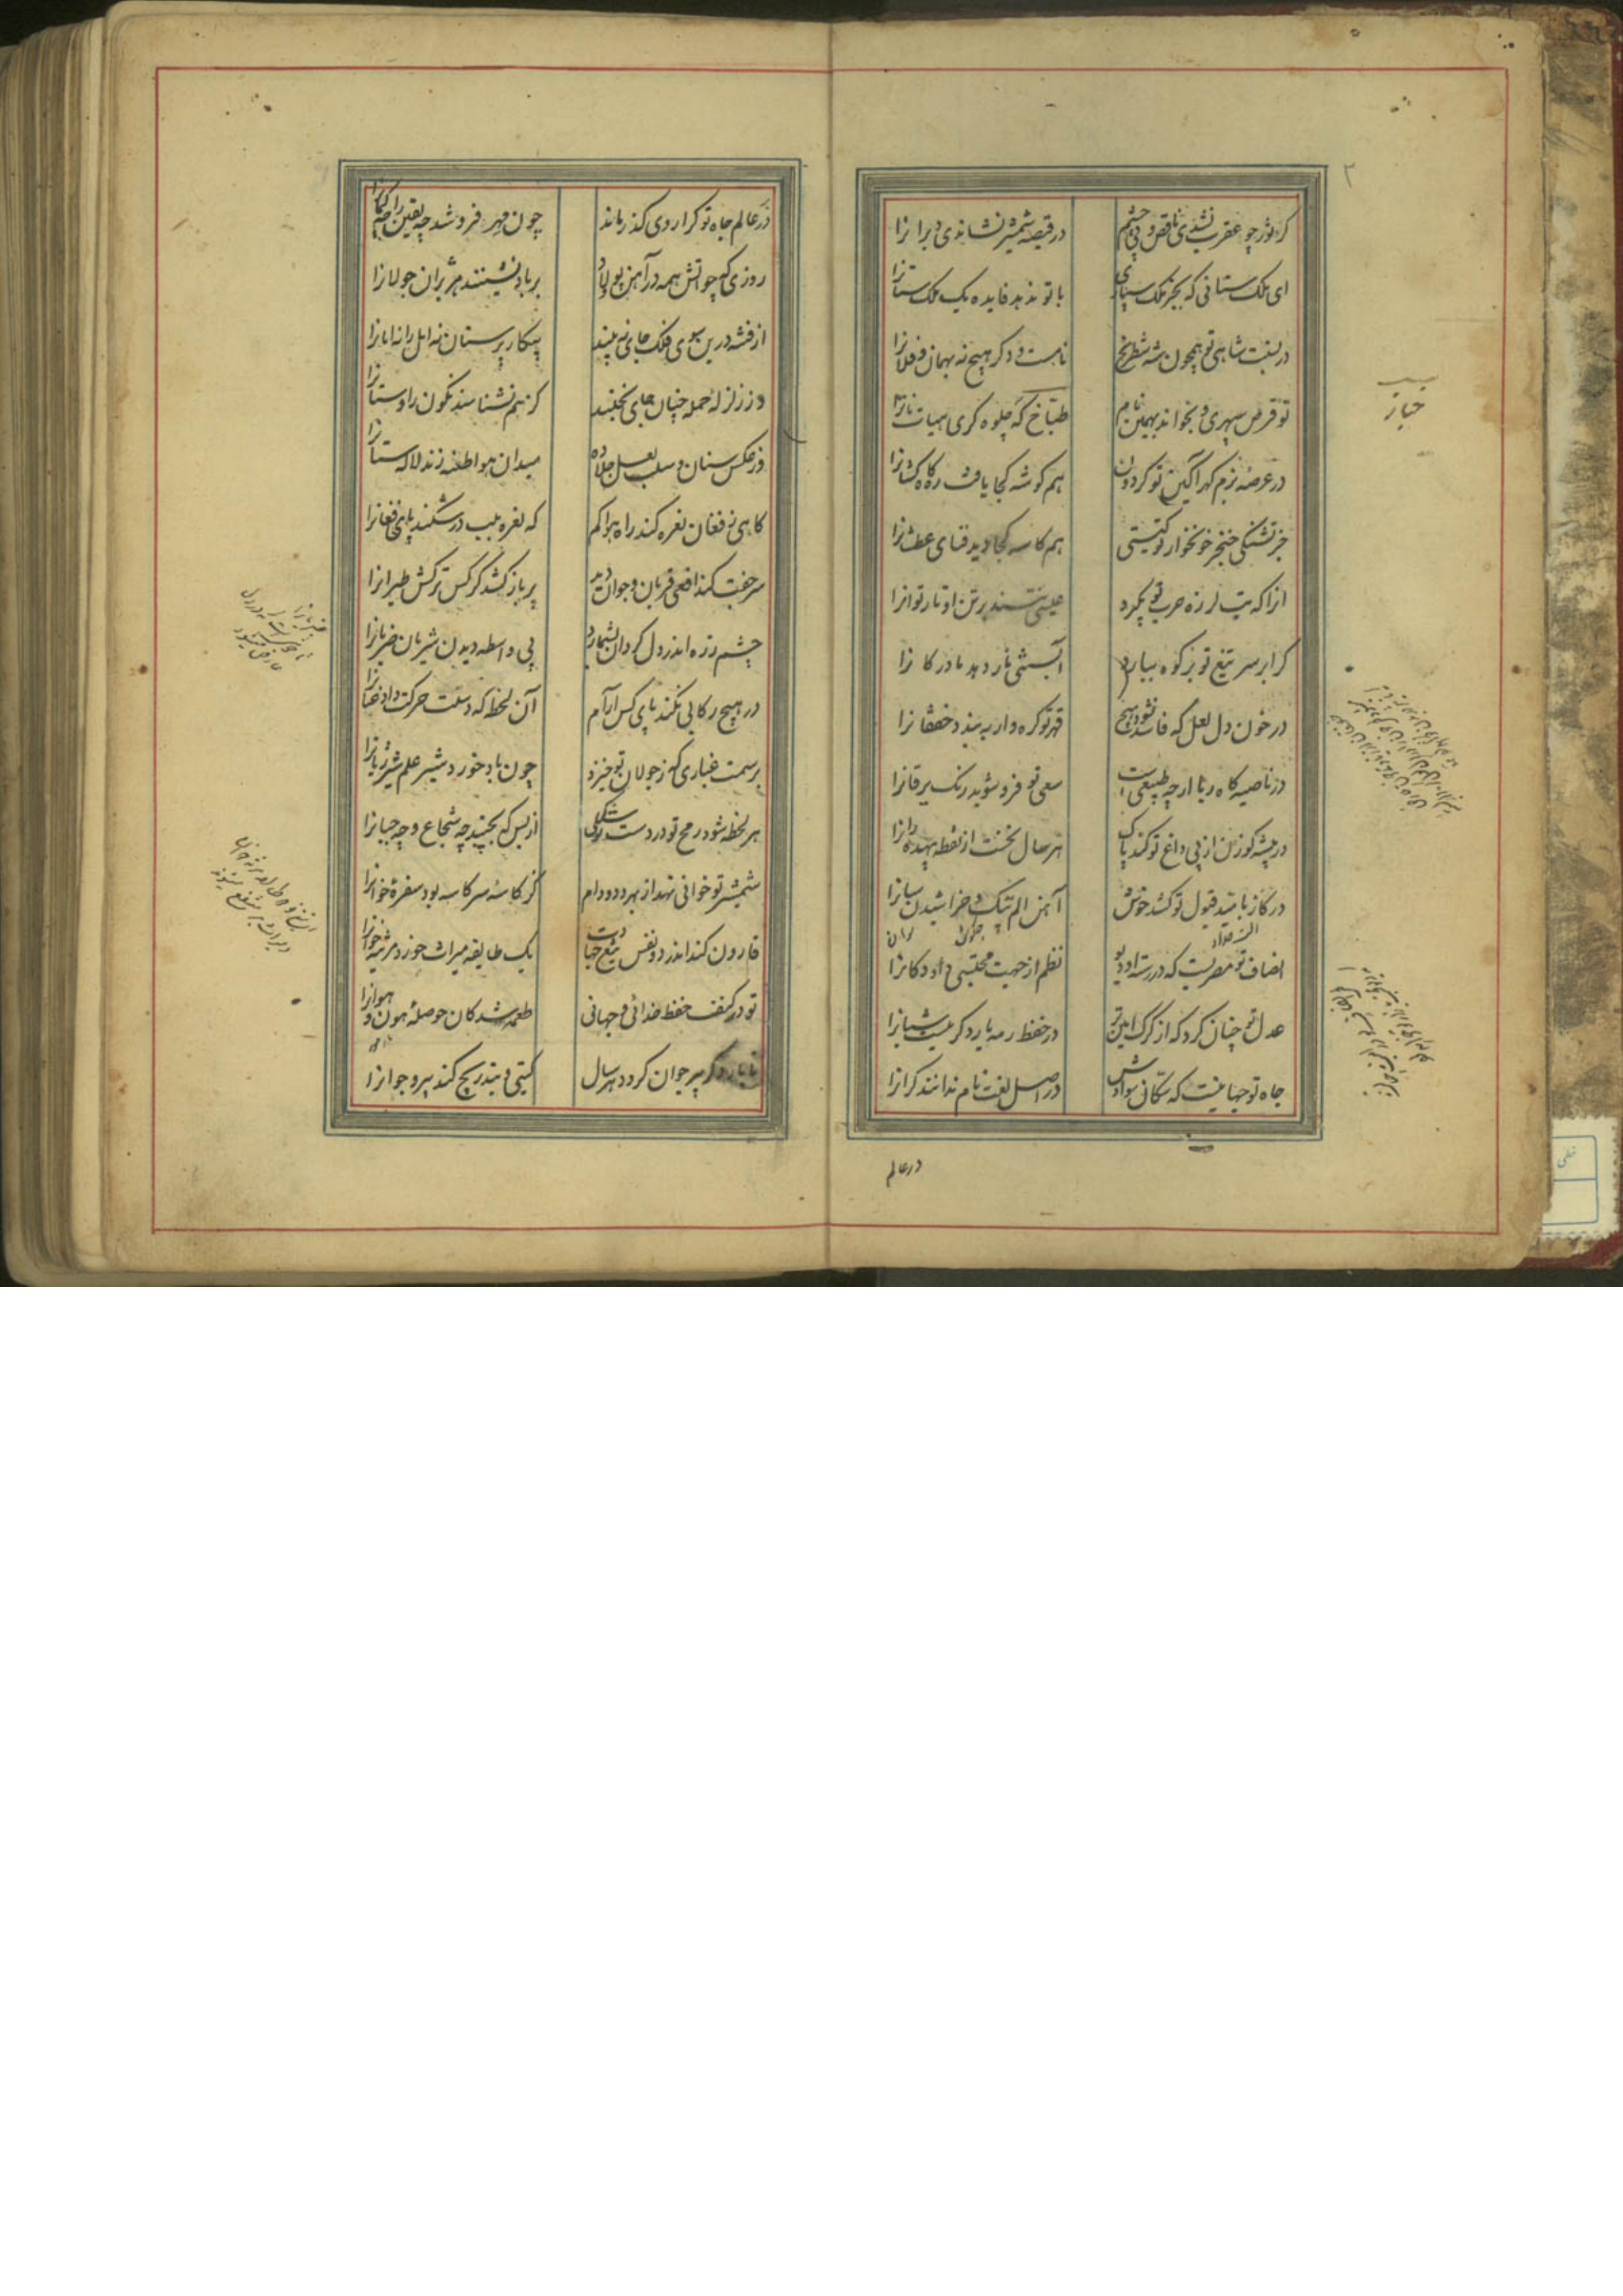 ۲
گر ثور چو عقرب نشدی ناقص و بی چشم
در قبضه شمشیر نشاندی دبرانرا
ای ملک ستانی که بجز ملک سپاری
با تو ندهد فایده یک ملک ستانرا
در نسبت شاهی تو همچون شه شطرنج
نامست و دگر هیچ نه بهمان و فلانرا
تو قرص سپهری و بخواند بهمین نام
طباخ که جلوه گری هیات نانرا
در عرصه بزم گهرآگین تو گردون
هم گوشه کجا یافت ره کاهکشانرا
جز تشنگی خنجر خونخوار تو گیتی
هم کاسه کجا دید قنای عطشانرا
انرا که تب لرزه حرب تو بگیرد
عیسی ننشستند برتن او تار توانرا
گر ابر سر تیغ تو بر کوه ببارد
آبستنی نار دهد مادر کانرا
در خون دل لعل که فاسد نشود هیچ
قهر تو گره وار ببندد خفقانرا
در ناصیه کاه ربا ارچه طبیعی است
سعی تو فرو شوید رنگ یرقانرا
در بیشه گوزن از پی داغ تو کند پاک
هر سال نخست از نقطه بیهده رانرا
در گاز بامید قبول تو کشد خوش
آهن الم پتک و خراشیدن سانرا
انصاف تو مصریست که در رسته او دیو
نظم از جهت محتسبی داد دکانرا
عدل تو چنان کرد که از گرگ امین تر
در حفظ رمه یار دگر نیست شبانرا
جاه تو جهانیست که سکان سوادش
در اصل لغت نام ندانند کرانرا
در عالم
در عالم جاه تو کرا روی گذر ماند
چون مهر فرو شد چه یقین را چه گمانرا
روزی که چو آتش همه در آهن پولاد
بر باد نشینند هژبران جولانرا
از فتنه درین سوی فلک جای نه بینند
پیکار پرستان نه امل را نه امانرا
وز زلزله حمله چنان جای بجنبند
کز هم نشناسند نگون را و ستانرا
وز عکس سنان و سلب لعل
میدان هوا طعنه زند لاله ستانرا
گاهی ز فغان نعره کند راه هوا گم
که نعره بلب در شکند پای فغانرا
سر جفت کند افعی قربان و چو آن دید
پر باز کشد کرکس ترکش طیرانرا
چشم زره اندر دل گردان بشمارد
بی واسطه دیدن شریان ضربانرا
در هیچ رکابی نکند پای کس آرام
آن لحظه که دستت حرکت داد عنانرا
بر سمت غباری که ز جولان تو خیزد
چون باد خورد شیر علم شیر ژیانرا
هر لحظه شود رمح تو در دست تو سلکی
از بس که بچیند چه شجاع و چه جبانرا
شمشیر تو خوانی نهد از بهر دد و دام
کز کاسه سر کاسه بود سفره خوانرا
قارون کند اندر دو نفس تیغ جهادت
یک طایفه میراث خور و مرثیه خوانرا
تو در کنف حفظ خدائی و جهانی
طعمه شدگان حوصله هون و هوانرا
تا بار دگر پیر جوان گردد هر سال
گیتی و بتدریج کند پیر و جوانرا